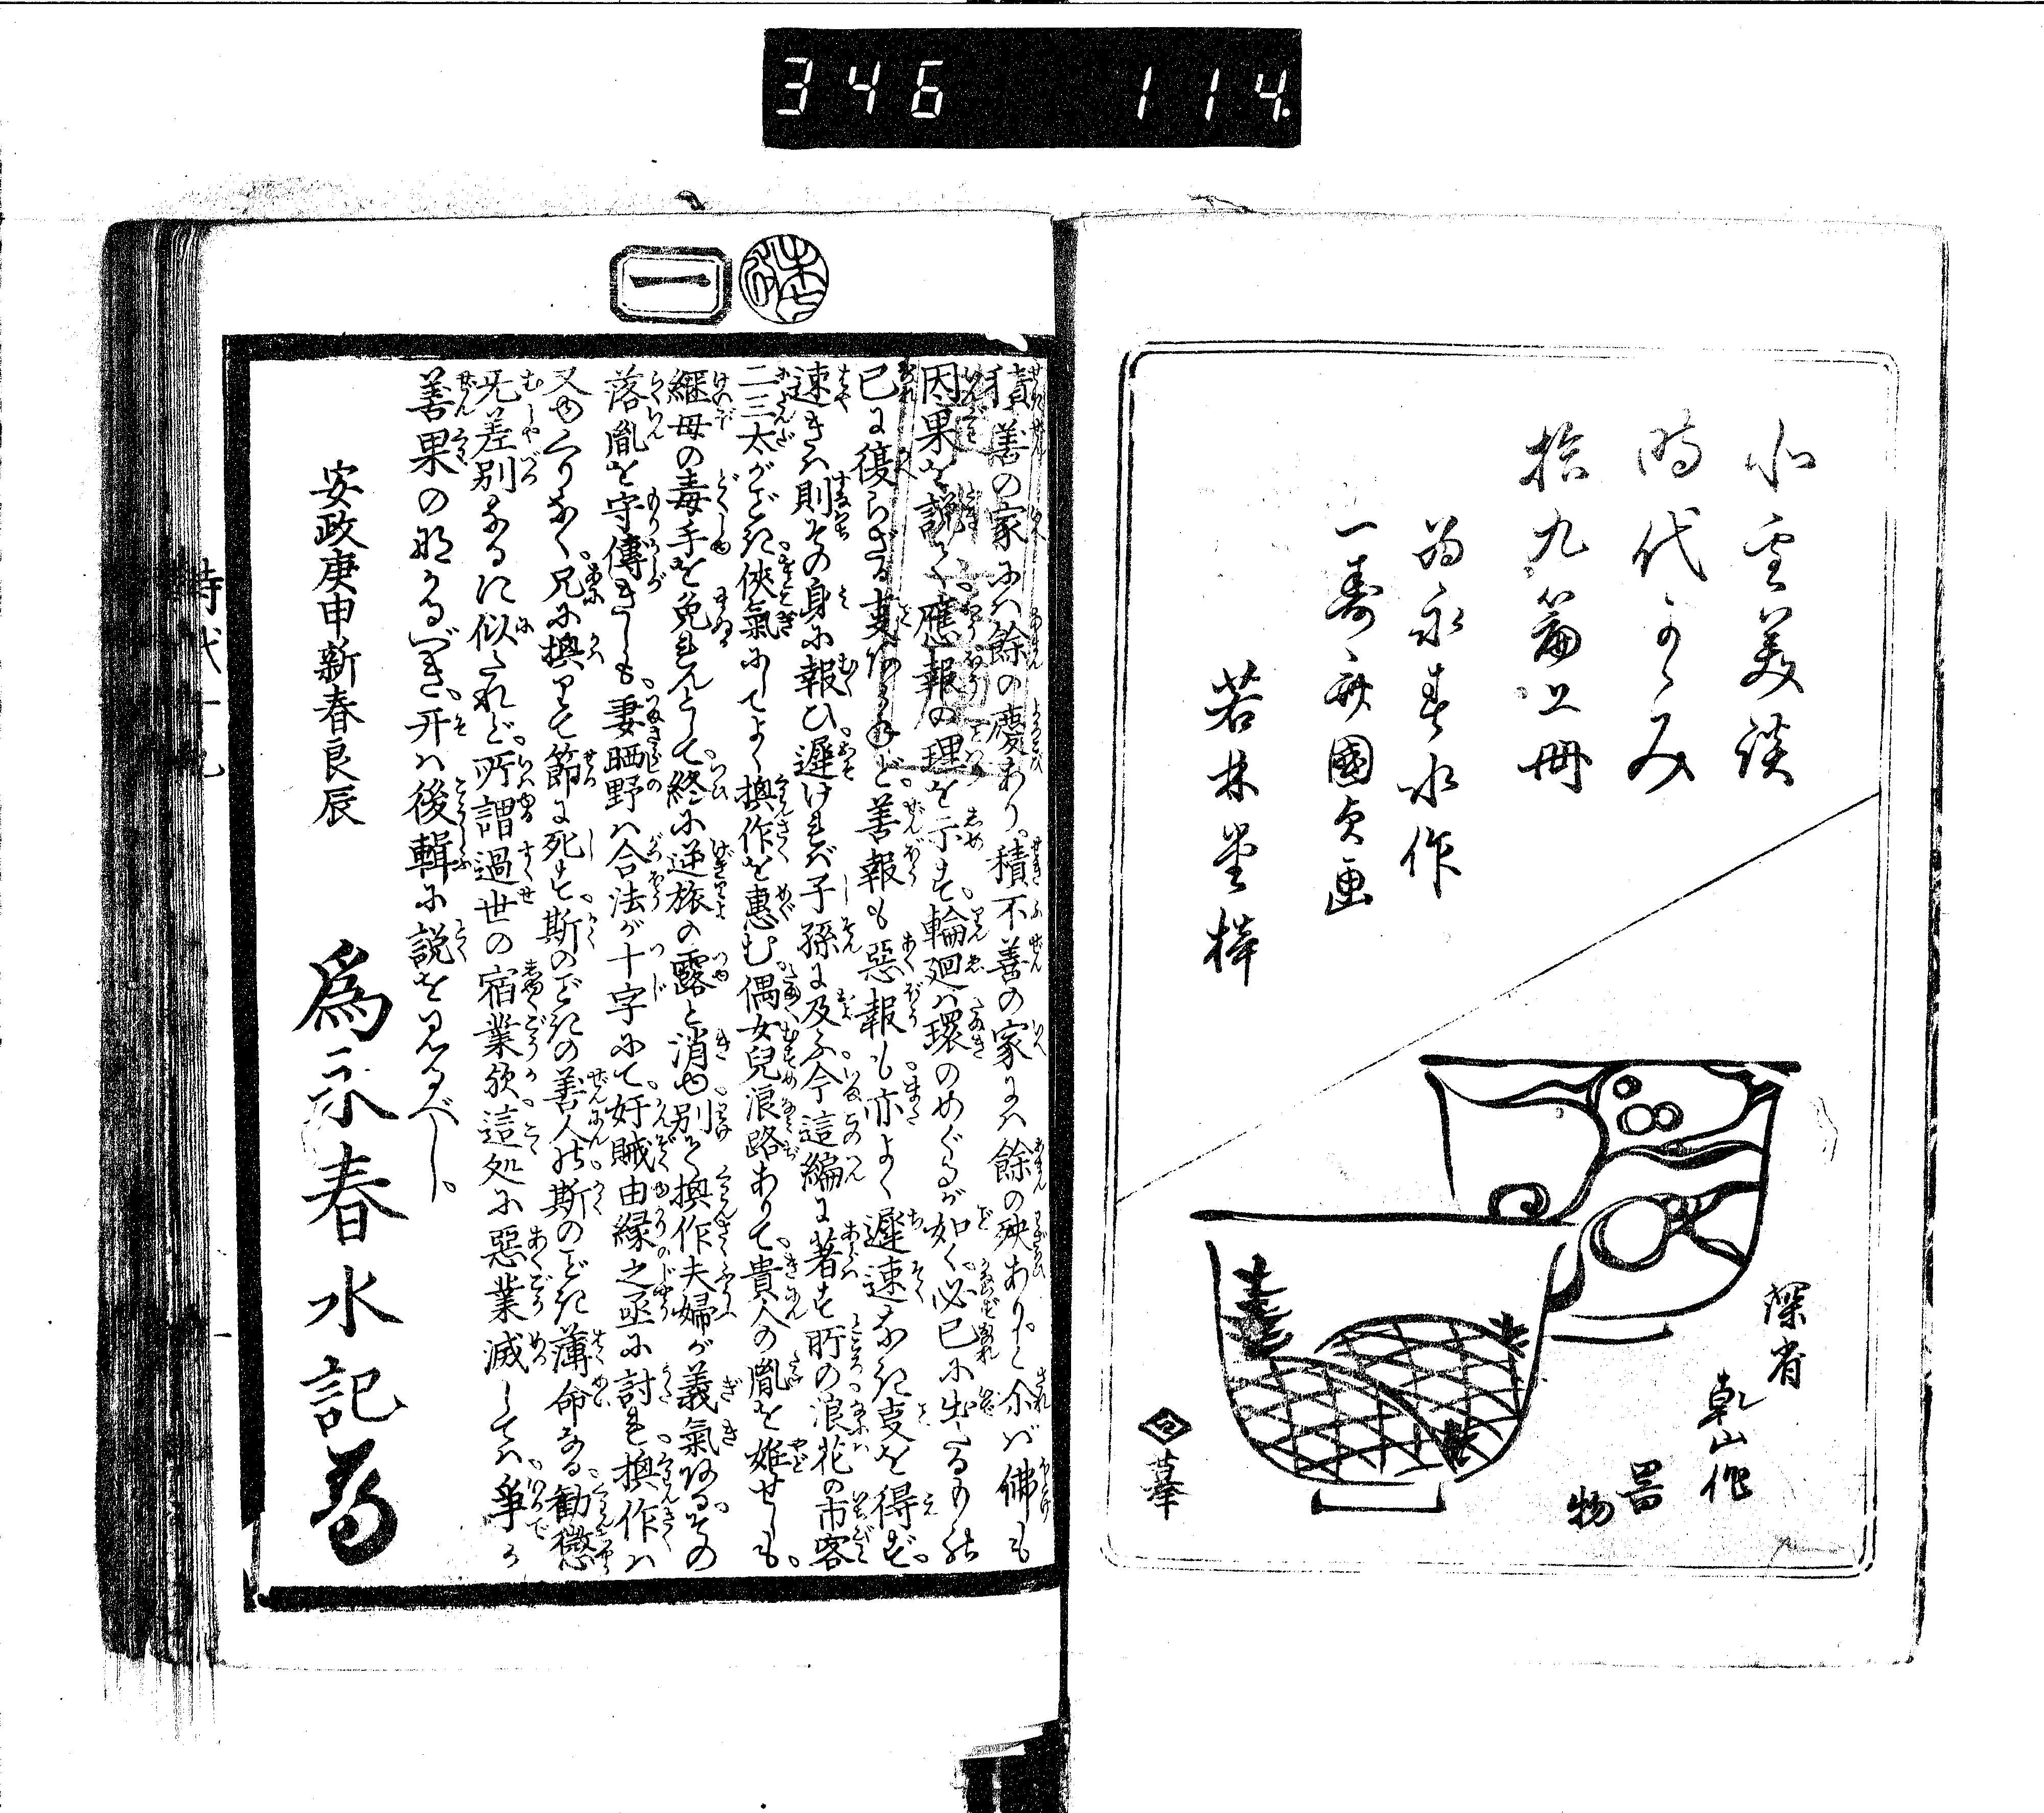 346 114
北雪美談
時代かゞみ
拾九篇上冊
為永春水作
一壽斎國貞画
若林堂梓
深省
乾山作
器
物
一
積善の家にハ餘の慶あり。積不善の家にハ餘の殃ありと。尒バ佛も
因果を説て、應報の理を示す。輪廻ハ環のめぐるが如く、必己に出たるもの
己に復らざる事なけれど。善報も惡報も。亦よく遲速なき事を得ず。
速きハ則その身に報ひ。遲ければ子孫に及ぶ。今這編に著す所の。浪花の市客
二三太がごとき。俠氣にしてよく換作を惠む。偶女兒浪路ありて。貴人の胤を姙せしも。
繼母の毒手を免れんとして。終に逆旅の露と消ゆ。別て換作夫婦が義氣ある。その
落胤を守傳きしも。妻晒野ハ合法が十字にて。奸賊由縁之丞に討れ。換作ハ
又ゆくりなく。兄に換りて節に死す。斯のごときの善人の。斯のごとき薄命なる。勸懲
无差別なるに似たれど。所謂過世の宿業欤。這処に惡業滅してハ。爭で
善果の那かるべき。开ハ後輯に説を見るべし。
安政庚申新春良辰
為永春水記